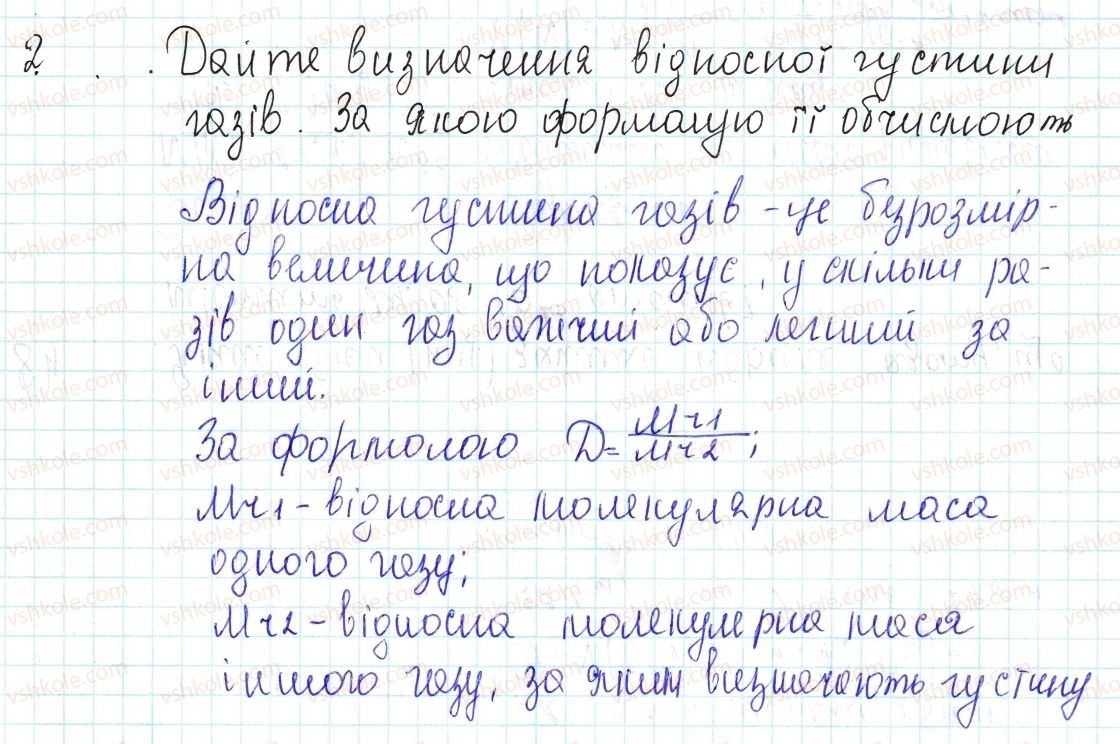 2. Дайте визначення відносної густини
газів. За якою формулою її обчислюють
Відносна густина газів - це безрозмір-
на величина, що показує, у скільки ра-
зів один газ важчий або легший за
інший.
За формолою D = Mч1 / Mч2 ;
Mч1 - відносна молекулярна маса
одного газу;
Mч2 - відносна молекулярна маса
іншого газу, за яким визначають густину